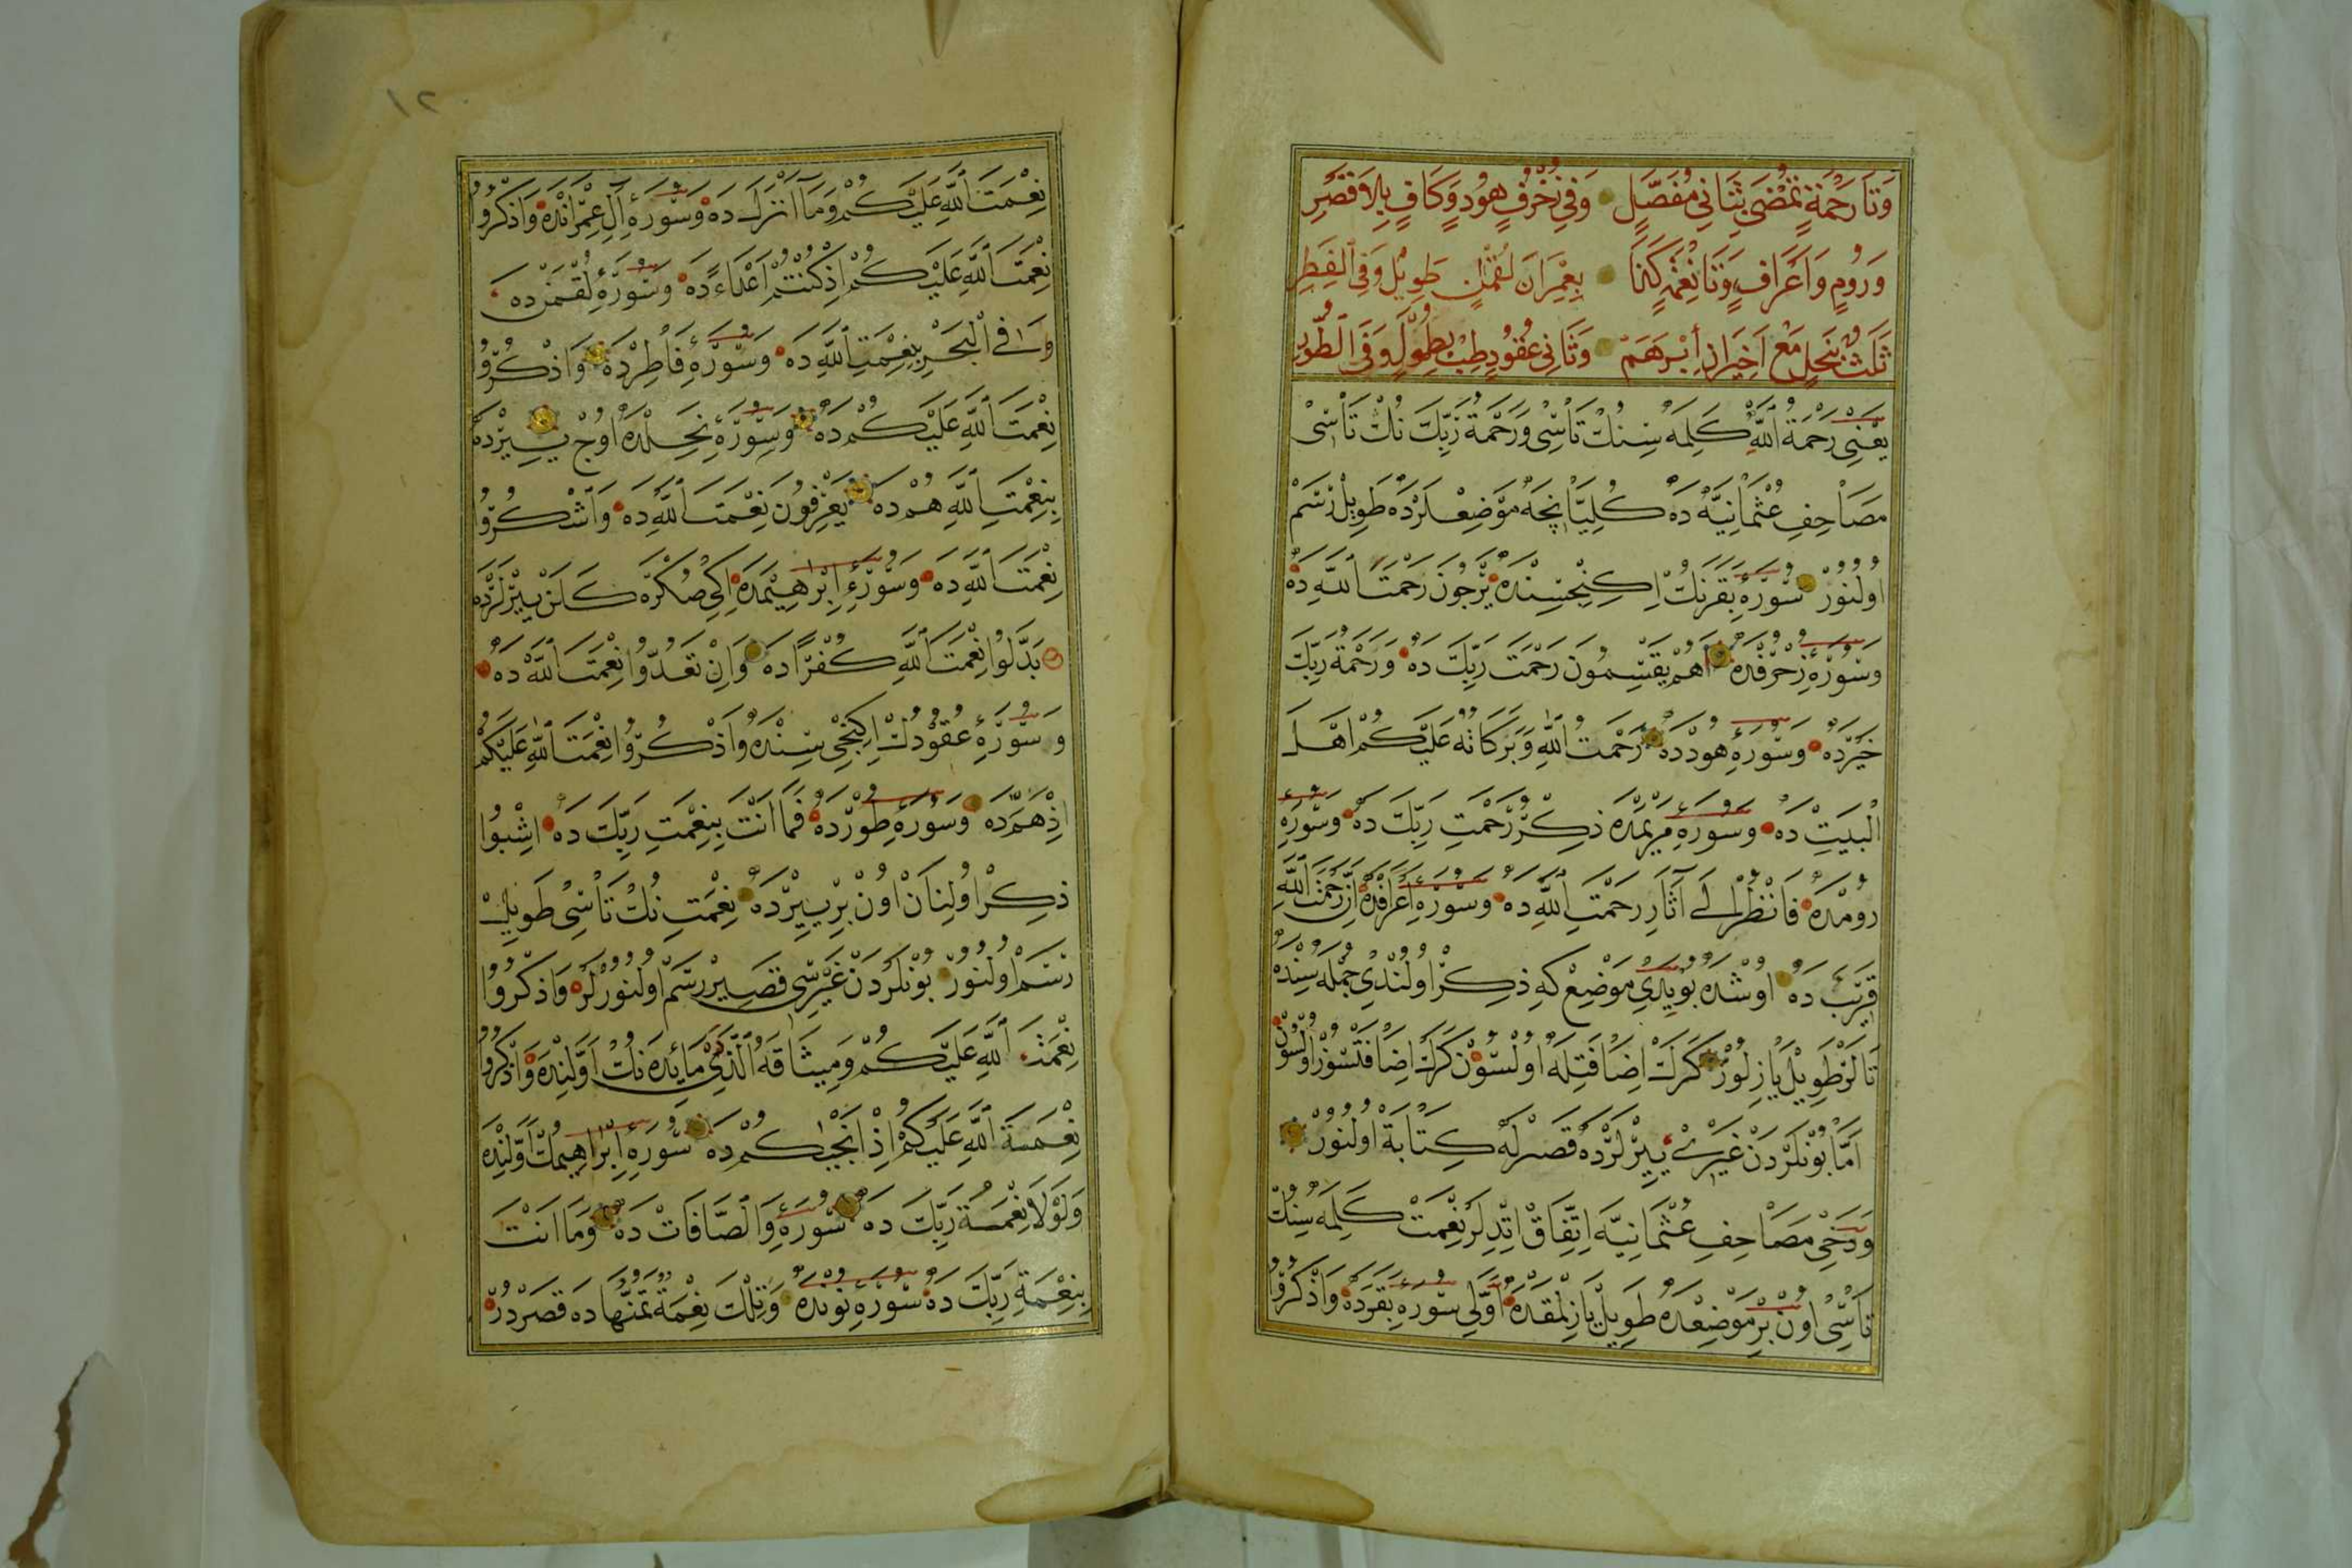 وَتَا رَحْمَةٍ تُمْضٰى بِثَانِى مُفَصَّلٍ وَفِى زُخْرُفٍ هُودٍ وَكَافٍ بِلَا قَصْرِ
وَرُومٍ وَاَعْرَافٍ وَتَا نِعْمَةٍ كَذَا بِعِمْرَانَ لُقْمٰنٍ طَوِيلٌ وَفِى الْفَطْرِ
ثَلٰثٌ بِنَحْلٍ مَعْ اَخِيرَانِ اِبْرَهَمَ وَثَانِى عُقُودٍ طِبْ بِطُولٍ وَفِى الطُّورِ
يَعْنِى رَحْمَةُ اللّٰهِ كَلِمَه سِنُكْ تَاسِى وَرَحْمَةُ رَبِّكَ نُكْ تَاسِى
مَصَاحِفِ عُثْمَانِيَّه دَه كُلِيَّا نِچَه مَوْضِعْلَرْدَه طَوِيلْ رَسْمْ
اُولُنُورْ سُورَهِٔ بَقَرَنِكْ اِكِنْجِسِنْدَه يَرْجُونَ رَحْمَتَ اللّٰهِ دَه
وَسُورَهِٔ زُخْرُفْدَه اَهُمْ يَقْسِمُونَ رَحْمَتَ رَبِّكَ دَه وَرَحْمَةُ رَبِّكَ
خَيْرْدَه وَسُورَهِٔ هُودْدَه رَحْمَتُ اللّٰهِ وَبَرَكَاتُهُ عَلَيْكُمْ اَهْلَ
الْبَيْتِ دَه وَسُورَهِٔ مَرْيَمْدَه ذِكْرُ رَحْمَتِ رَبِّكَ دَه وَسُورَهِٔ
رُومْدَه فَانْظُرْ اِلٰى آثَارِ رَحْمَتِ اللّٰهِ دَه وَسُورَهِٔ اَعْرَافْدَه اِنَّ رَحْمَتَ اللّٰهِ
قَرِيبٌ دَه اُوشْدَه بُو يَدِى مَوْضِعْ كِه ذِكْرْ اُولُنْدِى جُمْلَه سِنْدَه
تَالَرْ طَوِيلْ يَازِلُورْ كَرَكْ اِضَافَتِلَه اُولْسُونْ كَرَكْ اِضَافَتْسُزْ اُولْسُونْ
اَمَّا بُونْلَرْدَنْ غَيْرِى يِيرْلَرْدَه قَصْرِلَه كِتَابَة اُولُنُورْ
وَدَخِى مَصَاحِفِ عُثْمَانِيَّه اِتِّفَاقْ اِتْدِلَرْ نِعْمَتْ كَلِمَه سِنُكْ
تَاسِى اُونْ بِرْ مَوْضِعْدَه طَوِيلْ يَازِلْمَقْدَه اَوَّلِى سُورَهِٔ بَقَرَدَه وَاذْكُرُوا
نِعْمَتَ اللّٰهِ عَلَيْكُمْ وَمَا اَنْزَلَ دَه وَسُورَهِٔ آلِ عِمْرَانْدَه وَاذْكُرُوا
نِعْمَتَ اللّٰهِ عَلَيْكُمْ اِذْ كُنْتُمْ اَعْدَاءً دَه وَسُورَهِٔ لُقْمٰنْ دَه
فِى الْبَحْرِ بِنِعْمَتِ اللّٰهِ دَه وَسُورَهِٔ فَاطِرْدَه وَاذْكُرُوا
نِعْمَتَ اللّٰهِ عَلَيْكُمْ دَه وَسُورَهِٔ نَحْلِدَه اُوچْ يِيرْدَه
بِنِعْمَتِ اللّٰهِ هُمْ دَه يَعْرِفُونَ نِعْمَتَ اللّٰهِ دَه وَاشْكُرُوا
نِعْمَتَ اللّٰهِ دَه وَسُورَهِٔ اِبْرٰهِيمْدَه اِكِى صُكْرَه كَلَنْ يِيرْلَرْدَه
بَدَّلُوا نِعْمَتَ اللّٰهِ كُفْرًا دَه وَاِنْ تَعُدُّوا نِعْمَتَ اللّٰهِ دَه
وَسُورَهِٔ عُقُودُكْ اِكِنْجِى سِنْدَه وَاذْكُرُوا نِعْمَتَ اللّٰهِ عَلَيْكُمْ
اِذْ هَمَّ دَه وَسُورَهِٔ طُورْدَه فَمَا اَنْتَ بِنِعْمَتِ رَبِّكَ دَه اِشْبُوا
ذِكْرْ اُولِنَانْ اُونْ بِرْ يِيرْدَه نِعْمَتِ نُكْ تَاسِى طَوِيلْ
رَسْمْ اُولُنُورْ بُونْلَرْدَنْ غَيْرِسِى قَصِيرْ رَسْمْ اُولُنُورْلَرْ وَاذْكُرُوا
نِعْمَةَ اللّٰهِ عَلَيْكُمْ وَمِيثَاقَهُ الَّذِى مَائِدَه نُكْ اَوَّلِنْدَه وَاذْكُرُوا
نِعْمَةَ اللّٰهِ عَلَيْكُمْ اِذْ اَنْجٰيكُمْ دَه سُورَهِٔ اِبْرَاهِيمُكْ اَوَّلِنْدَه
وَلَوْلَا نِعْمَةُ رَبِّكَ دَه سُورَهِٔ وَالصَّافَاتْ دَه وَمَا اَنْتَ
بِنِعْمَةِ رَبِّكَ دَه سُورَهِٔ نُونْدَه وَتِلْكَ نِعْمَةٌ تَمُنُّهَا دَه قَصْرْدُرْ
١٢